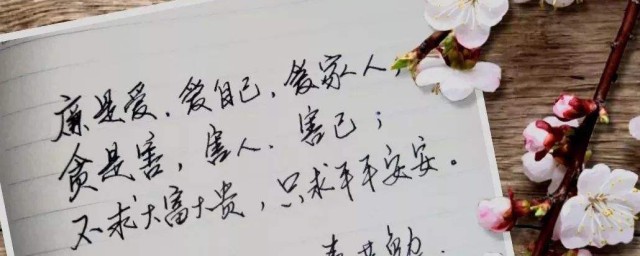 廉是爱，爱自己，爱家人，
贪是害，害人、害己；
不求大富大贵，只求平平安安。
共勉